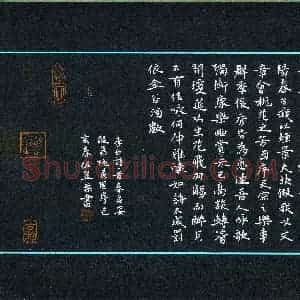 陽春召我以煙景大塊假我以文
章會桃花之芳園序天倫之樂事
群季俊秀皆為惠連吾人詠歌
獨慚康樂幽賞未已高談轉清
開瓊筵以坐花飛羽觴而醉月
不有佳詠何伸雅懷如詩不成罰
依金谷酒數
李白
桃花園序己
亥春 書
Shufaziliao.com